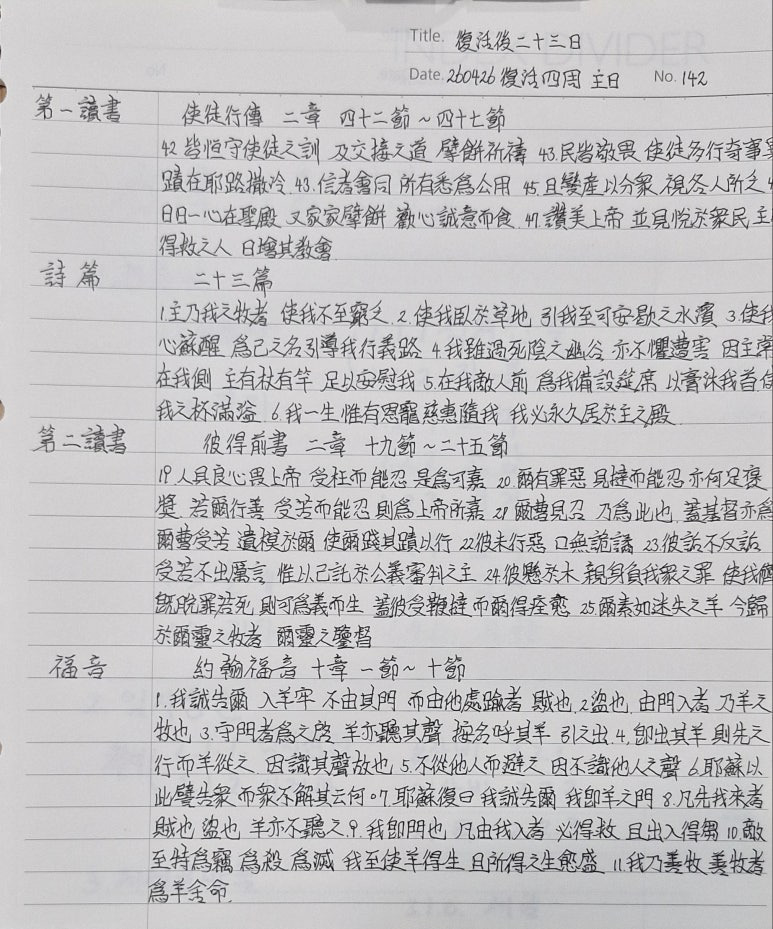 Title. 復活後二十三日
Date. 260426 復活四周 主日 No. 142
第一讀書 使徒行傳 二章 四十二節~四十七節
42 皆恒守使徒之訓 及交接之道 擘餅祈禱 43.民皆敬畏 使徒多行奇事異
蹟在耶路撒冷. 43.信者會同 所有悉爲公用 45.且變産以分衆 視各人所乏 4
日日一心在聖殿 又家家擘餅 歡心誠意而食. 47.讚美上帝 並見悅於衆民 主
得救之人 日增其教會.
詩篇 二十三篇
1.主乃我之牧者 使我不至窮乏. 2.使我臥於草地 引我至可安歇之水濱 3.使我
心蘇醒 爲己之名引導我行義路 4.我雖過死陰之幽谷 亦不懼遭害 因主常
在我側 主有杖有竿 足以安慰我 5.在我敵人前 爲我備設筵席 以膏沐我首 使
我之杯滿溢. 6.我一生惟有恩寵慈惠隨我 我必永久居於主之殿.
第二讀書 彼得前書 二章 十九節~二十五節
19.人具良心畏上帝 受枉而能忍 是爲可嘉 20.爾有罪惡 見撻而能忍 亦何足褒
獎 若爾行善 受苦而能忍 則爲上帝所嘉 21 爾曹見召 乃爲此也 蓋基督亦爲
爾曹受苦 遺模於爾 使爾踐其蹟以行 22.彼未行惡 口無詭譎 23.彼詬不反詬
受苦不出厲言 惟以己託於公義審判之主 24.彼懸於木 親身負我衆之罪 使我儕
旣脫罪若死 則可爲義而生 蓋彼受鞭撻而爾得痊愈 25.爾素如迷失之羊 今歸
於爾靈之牧者 爾靈之鑒督
福音 約翰福音 十章 一節~十節
1.我誠告爾 入羊牢 不由其門 而由他處踰者 賊也.2盜也. 由門入者 乃羊之
牧也 3.守門者爲之啓 羊亦聽其聲 按名呼其羊 引之出. 4.卽出其羊 則先之
行而羊從之 因識其聲故也 5.不從他人而避之 因不識他人之聲 6.耶蘇以
此譬告衆 而衆不解其云何。7.耶蘇復曰 我誠告爾 我卽羊之門 8.凡先我來者
賊也 盜也 羊亦不聽之.9.我卽門也 凡由我入者 必得救 且出入得芻 10.敵
至特爲竊 爲殺 爲滅 我至使羊得生 且所得之生愈盛 11.我乃善牧 善牧者
爲羊舍命.